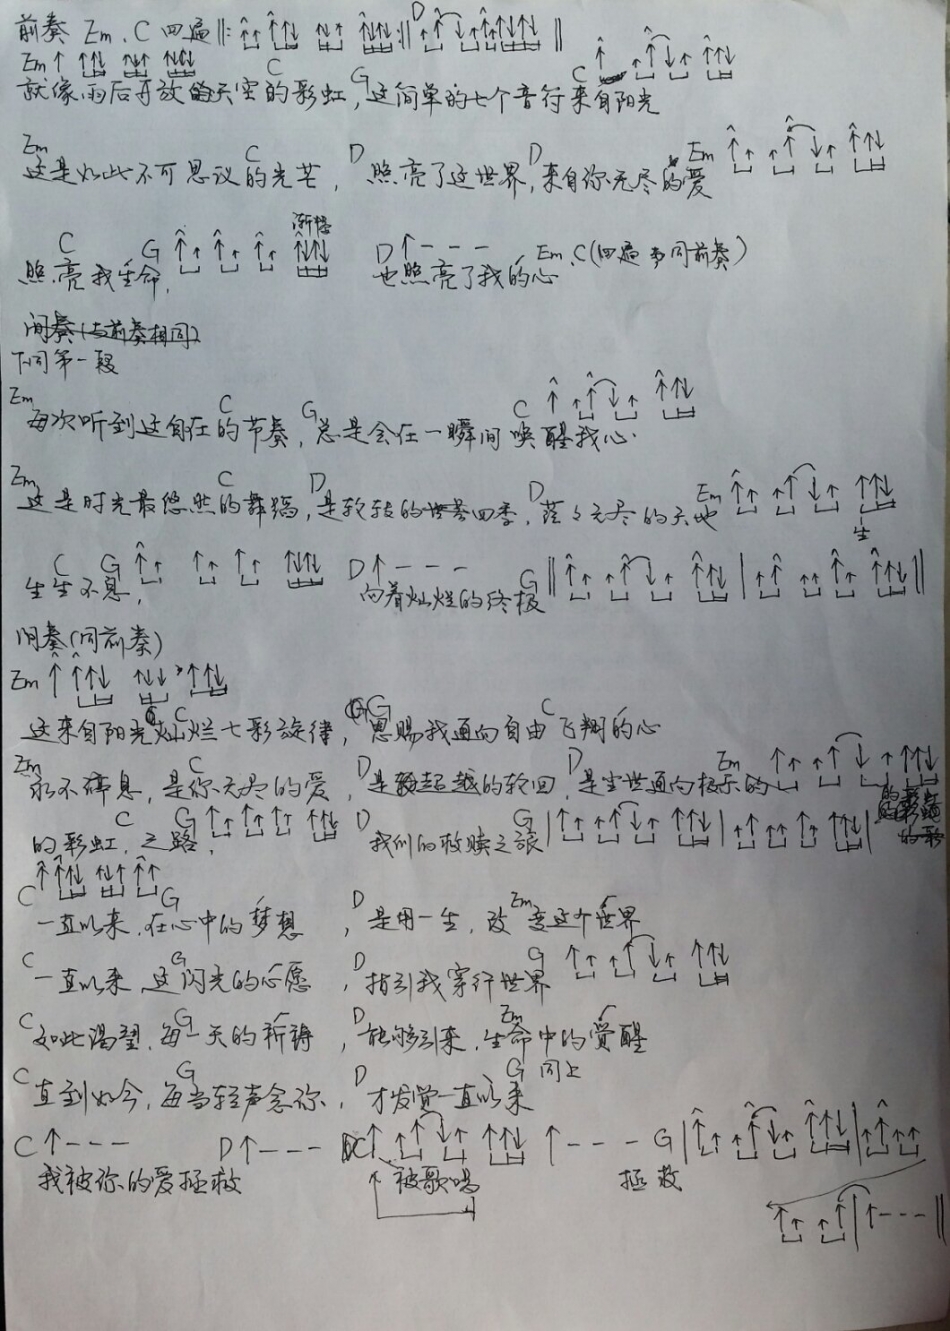 前奏 Em、C 四遍 D
Em C G C
就像雨后开放的天空的彩虹，这简单的七个音符来自阳光
Em C D D Em
这是如此不可思议的光芒， 照亮了这世界，来自你无尽的爱
渐慢
C G D Em、C(四遍 同前奏)
照亮我生命， 也照亮了我的心
间奏(与前奏相同)
下同第一段
Em C G C
每次听到这自在的节奏，总是会在一瞬间唤醒我心.
Em C D D Em
这是时光最悠然的舞蹈，是软软的四季， 无尽的天地
生
C G D G
生生不息， 向着灿烂的终极
间奏(同前奏)
Em
C G C
这来自阳光灿烂七彩旋律， 恩赐我通向自由飞翔的心
Em C D D Em
永不停息，是你无尽的爱，是超越的轮回，是尘世通向极乐的
C G D G
的彩虹，之路， 我们的救赎之旅
C G D Em
一直以来，在心中的梦想 ，是用一生，改变这个世界
C G D G
一直以来，这闪光的心愿 ，指引我穿行世界
C G D Em
如此渴望，每一天的祈祷 ，能够引来，生命中的觉醒
C G D G 同上
直到如今，每当轻声念你，才发觉一直以来
C D C G
我被你的爱拯救 被歌唱 拯救